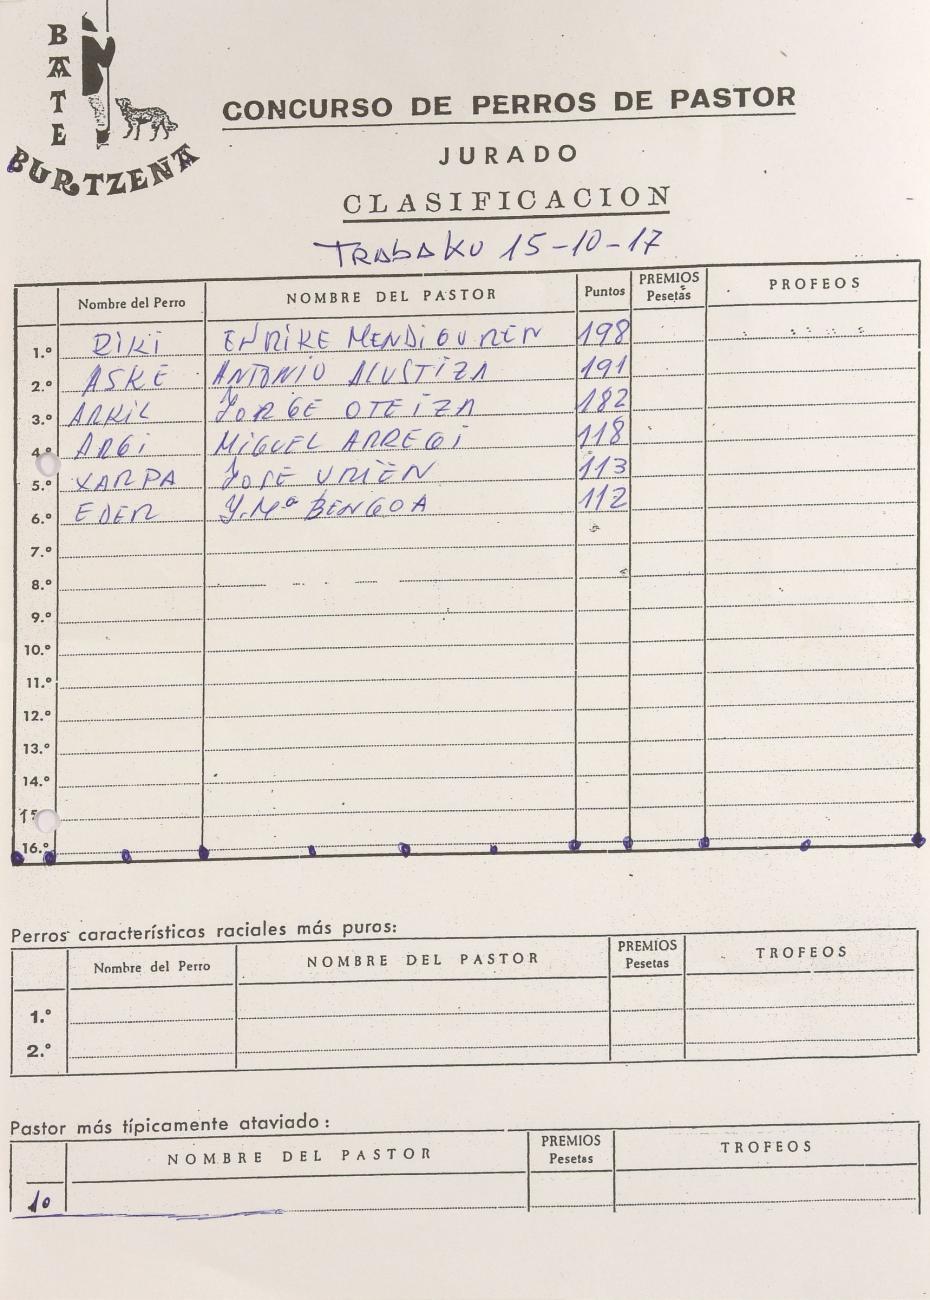 BATE
BURTZEÑA
CONCURSO DE PERROS DE PASTOR
JURADO
CLASIFICACION
TRABAKU 15-10-17
Nombre del Perro NOMBRE DEL PASTOR Puntos PREMIOS Pesetas PROFEOS
1.º RIKI ENRIKE MENDIGUREN 198
2.º ASKE ANTONIO ALUSTIZA 191
3.º ARKIL JORGE OTEIZA 182
4.º ARGI MIGUEL ARREGI 118
5.º XARPA JOSE URIEN 113
6.º EDER J.Mª BENGOA 112
7.º
8.º
9.º
10.º
11.º
12.º
13.º
14.º
15
16.º
Perros características raciales más puros:
Nombre del Perro NOMBRE DEL PASTOR PREMIOS Pesetas TROFEOS
1.º
2.º
Pastor más típicamente ataviado:
NOMBRE DEL PASTOR PREMIOS Pesetas TROFEOS
1º